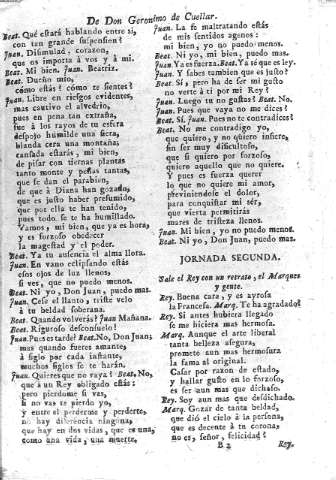 De Don Geronimo de Cuellar.
Beat. Qué estará hablando entre sí,
con tan grande suspension?
Juan. Disimulad, corazon,
que os importa à vos y à mi.
Beat. Mi bien. Juan. Beatriz.
Beat. Dueño mio,
cómo estás? cómo te sientes?
Juan. Libre en riesgos evidentes,
mas cautivo el alvedrio,
pues en pena tan extraña,
fue à los rayos de tu esfera
despojo humilde una fiera,
blanda cera una montaña.
cansada estarás, mi bien,
de pisar con tiernas plantas
tanto monte y peñas tantas,
que se dan el parabien,
de que à Diana han gozado,
que es justo haber presumido,
que por ella te han tenido,
pues todo se te ha humillado.
Vamos, mi bien, que ya es hora,
y es forzoso obedecer
la magestad y el poder.
Beat. Ya tu ausencia el alma llora.
Juan. En vano eclipsando estás
esos ojos de luz llenos,
si ves, que no puedo menos.
Beat. Ni yo, Don Juan, puedo mas.
Juan. Cese el llanto, triste velo
à tu beldad soberana.
Beat. Quando volverás? Juan Mañana.
Beat. Riguroso desconsuelo!
Juan. Pues es tarde? Beat. No, Don Juan;
mas quando fueres amante,
à siglo por cada instante,
muchos siglos se te harán.
Juan. Quieres que no vaya? Beat. No,
que à un Rey obligado estás:
pero pierdome si vas,
si no vas te pierdo yo,
y entre el perderme y perderte,
no hay diferencia ninguna,
que hay en dos vidas, que es una,
como una vida, una muerte.
Juan. La fe maltratando estás
de mis sentidos agenos:
mi bien, yo no puedo menos.
Beat. Ni yo, mi bien, puedo mas.
Juan. Ya es fuerza. Beat. Ya sé que es ley.
Juan. Y sabes tambien que es justo?
Beat. Sí, pero ha de ser mi gusto
no verte à tí por mi Rey!
Juan. Luego tu no gustas? Beat. No.
Juan. Pues que vaya no me dices?
Beat. Sí. Juan. Pues no te contradices?
Beat. No me contradigo yo,
que quiero, y no quiero infiero,
sin ser muy dificultoso,
que si quiero por forzoso,
quiero aquello que no quiero.
Y pues es fuerza querer
lo que no quiere mi amor,
previniendose el dolor,
para conquistar mi sér,
que vierta permitirás
mares de tristeza llenos.
Juan. Mi bien, yo no puedo menos.
Beat. Ni yo, Don Juan, puedo mas.
JORNADA SEGUNDA.
Sale el Rey con un retrato, el Marques
y gente.
Rey. Buena cara, y es ayrosa
la Francesa. Marq. Te ha agradado?
Rey. Si antes hubiera llegado
se me hiciera mas hermosa.
Marq. Aunque el arte liberal
tanta belleza asegura,
promete aun mas hermosura
la fama al original.
Rey. Casar por razon de estado,
y hallar gusto en lo forzoso,
es ser aun mas que dichoso.
Rey. Soy aun mas que desdichado.
Marq. Gozar de tanta beldad,
que dió el cielo à la persona,
que es decente à tu corona;
no es, señor, felicidad?
B 2
Rey.